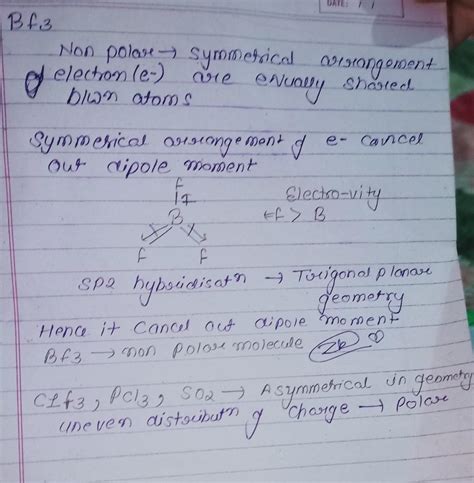 DATE: / /
Bf3
Non polar → symmetrical arrangement
of electron (e-) are equally shared
b/wn atoms
Symmetrical arrangement of e- cancel
out dipole moment
f
B
f f
Electro-vity
f > B
SP2 hybridisatn → Trigonal planar
geometry
Hence it cancel out dipole moment
Bf3 → non polar molecule
Clf3, PCl3, SO2 → Asymmetrical in geometry
uneven distributn of charge → Polar